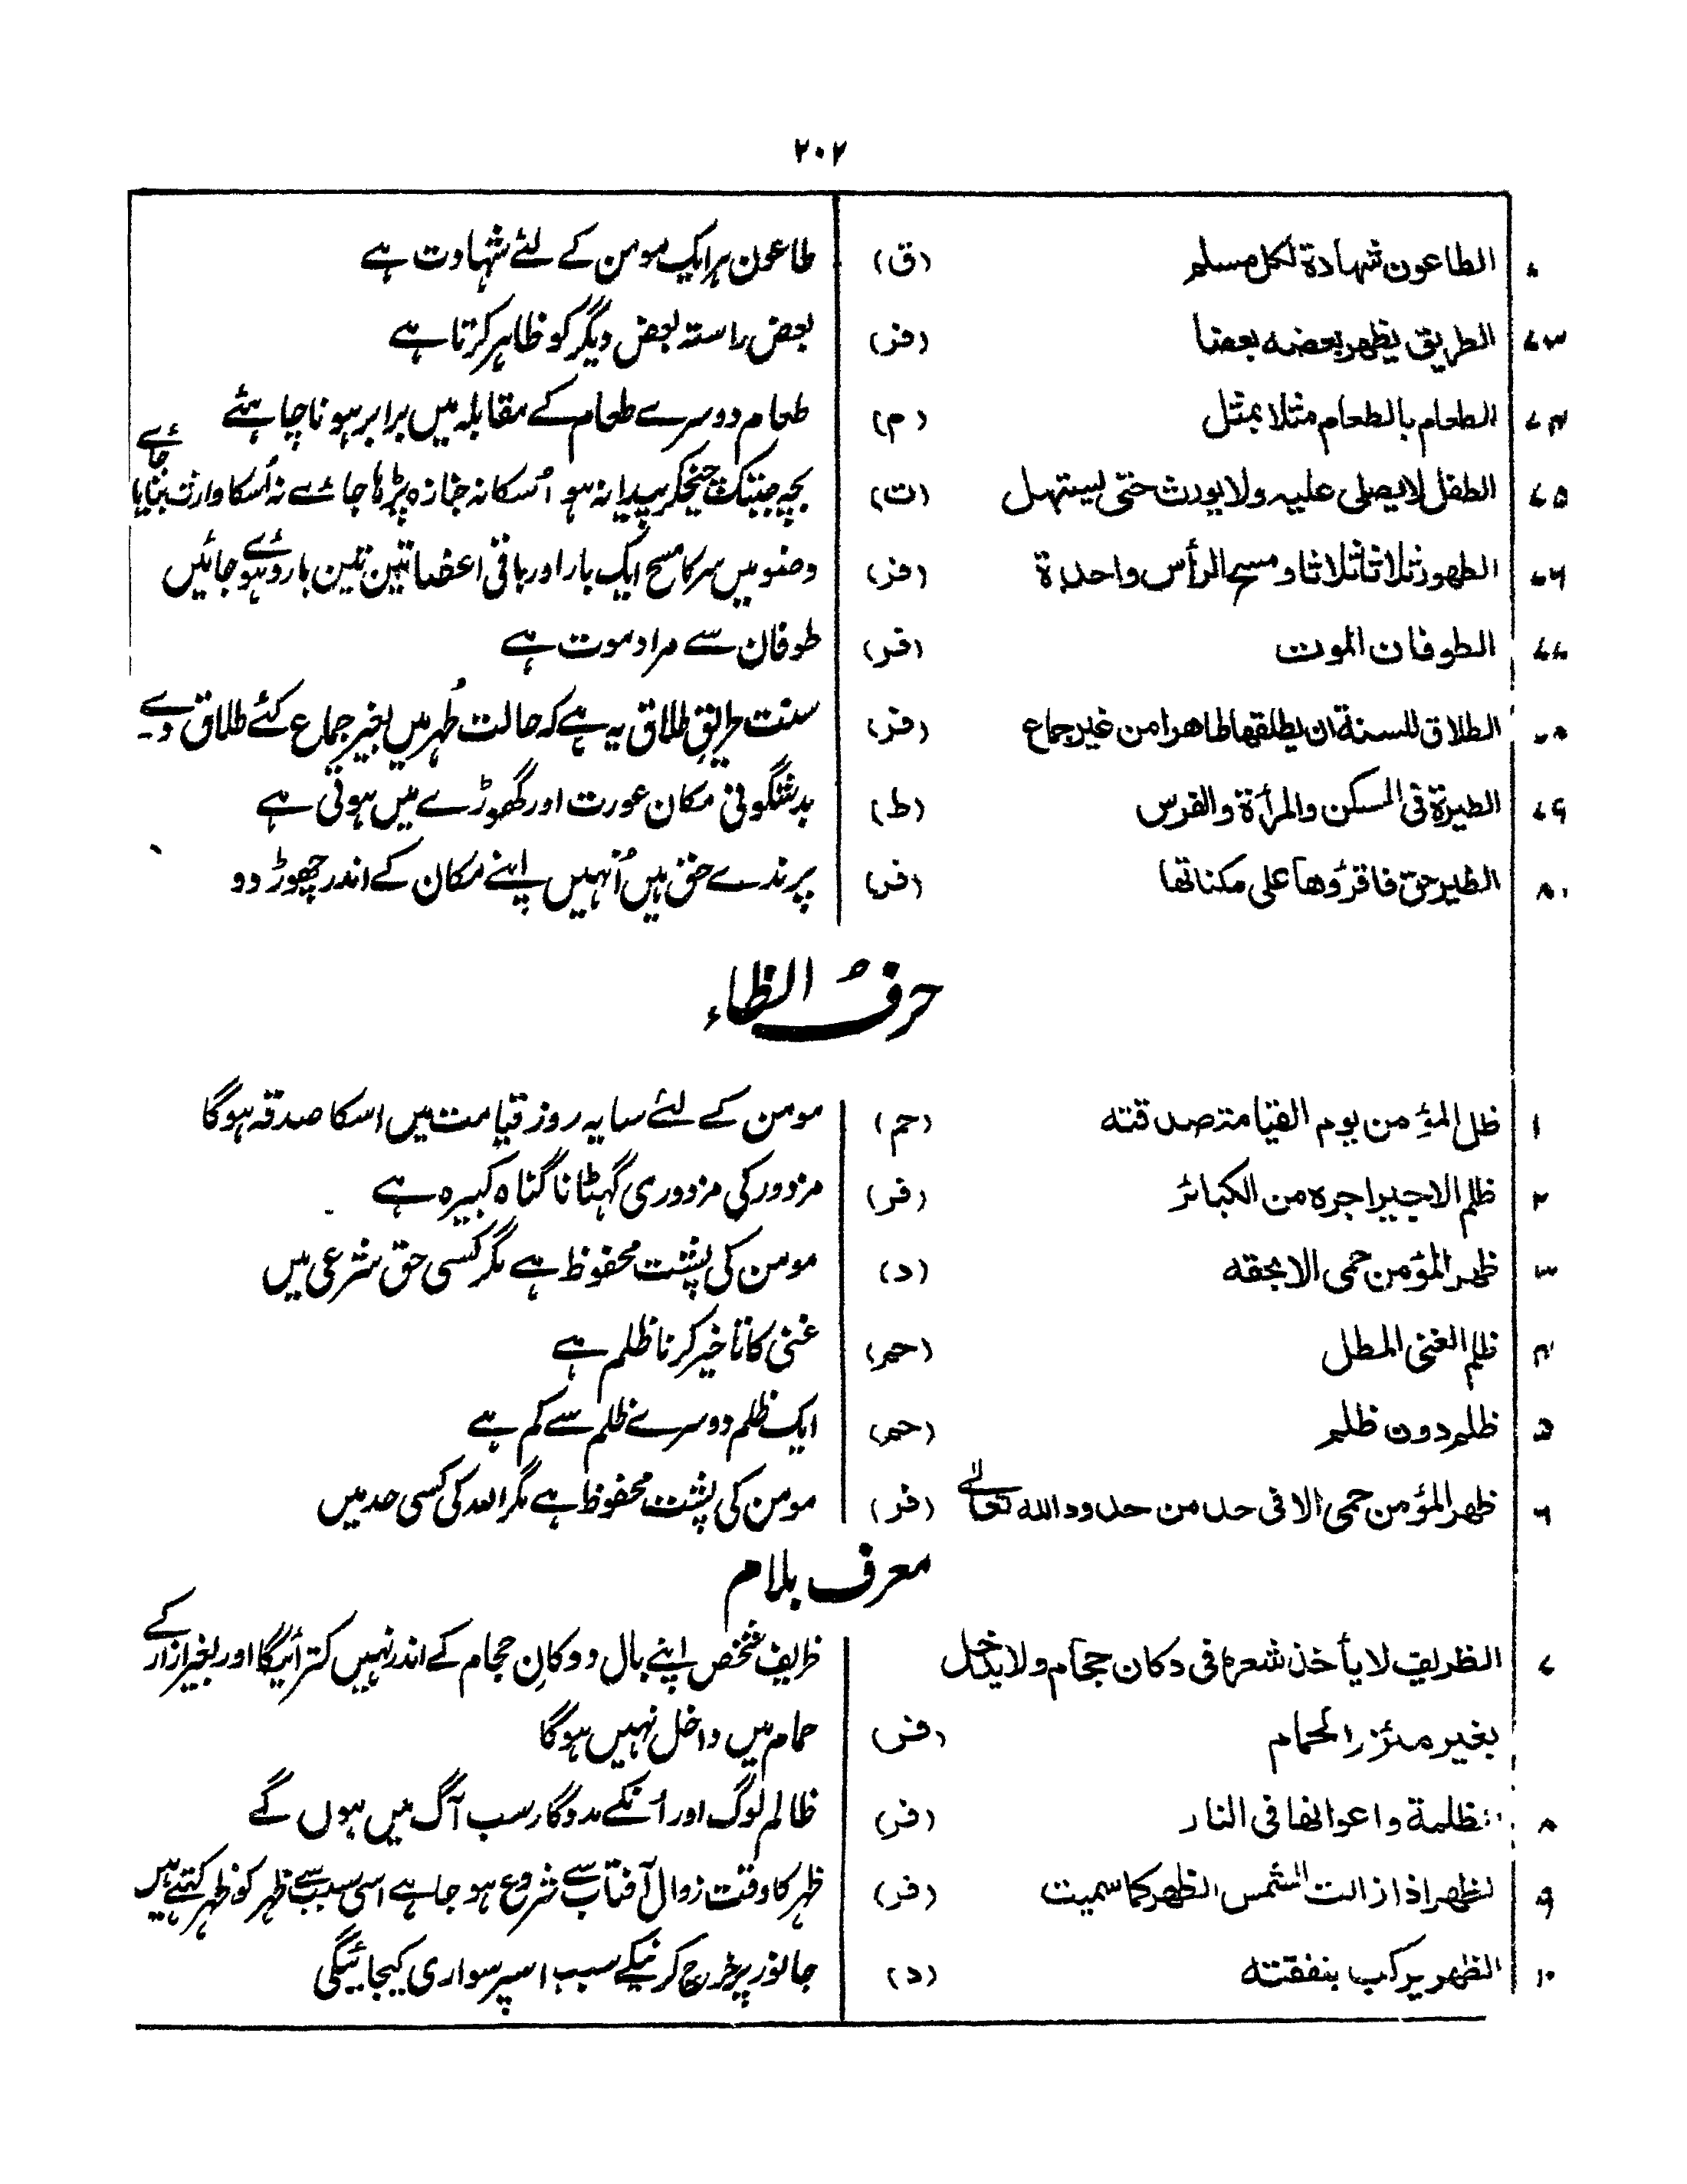 ۲۰۲
الطاعون شهادة لكل مسلم (ق) طاعون ہر ایک مومن کے لئے شہادت ہے
۷۳ الطريق يظهر بعضه بعضا (فر) بعض راستہ بعض دیگر کو ظاہر کرتا ہے
۷۴ الطعام بالطعام مثلا بمثل (م) طعام دوسرے طعام کے مقابلہ میں برابر ہونا چاہئے
۷۵ الطفل لا يصلى عليه ولا يورث حتى يستهل (ت) بچہ جبتک چیخکر پیدا نہ ہو اُسکا نہ جنازہ پڑہا جائے نہ اُسکا وارث بنایا جائے
۷۶ الطهور ثلاثا ثلاثا ومسح الرأس واحدة (فر) وضو میں سر کا مسح ایک بار اور باقی اعضا تین تین بار دہوئے جائیں
۷۷ الطوفان الموت (فر) طوفان سے مراد موت ہے
۷۸ الطلاق للسنة ان يطلقها طاهرا من غير جماع (فر) سنت طریقِ طلاق یہ ہے کہ حالت طُہر میں بغیر جماع کئے طلاق دے۔
۷۹ الطيرة فى المسكن والمرأة والفرس (ط) بدشگونی مکان عورت اور گھوڑے میں ہوتی ہے
۸۰ الطير حق فاقرؤها على مكناتها (فر) پرندے حق ہیں اُنہیں اپنے مکان کے اندر چھوڑ دو
حرفُ الظاء
۱ ظل المؤمن يوم القيامة صدقته (حم) مومن کے لئے سایہ روز قیامت میں اسکا صدقہ ہوگا
۲ ظلم الاجير اجره من الكبائر (فر) مزدور کی مزدوری گہٹانا گناہ کبیرہ ہے
۳ ظهر المؤمن حمى الا بحقه (د) مومن کی پشت محفوظ ہے مگر کسی حق شرعی میں
۴ ظلم الغنى المطل (حم) غنی کا تاخیر کرنا ظلم ہے
۵ ظلم دون ظلم (حم) ایک ظلم دوسرے ظلم سے کم ہے
۶ ظهر المؤمن حمى الا فى حد من حدود الله تعالى (فر) مومن کی پشت محفوظ ہے مگر اللہ کی کسی حد میں
معرف بلام
۷ الظريف لا يأخذ شعره فى دكان حجام ولا يدخل ظریف شخص اپنے بال دوکانِ حجام کے اندر نہیں کترائیگا اور بغیر ازار کے
بغير مئزر الحمام (فر) حمام میں داخل نہیں ہوگا
۸ الظلمة واعوانها فى النار (فر) ظالم لوگ اور اُنکے مددگار سب آگ میں ہوں گے
۹ لظهر اذا زالت الشمس الظهر كما سميت (فر) ظہر کا وقت زوال آفتاب سے شروع ہو جاہے اسی سبب سے ظہر کو ظہر کہتے ہیں
۱۰ الظهر يركب بنفقته (د) جانور پر خرچ کرنیکے سبب اسپر سواری کیجائیگی